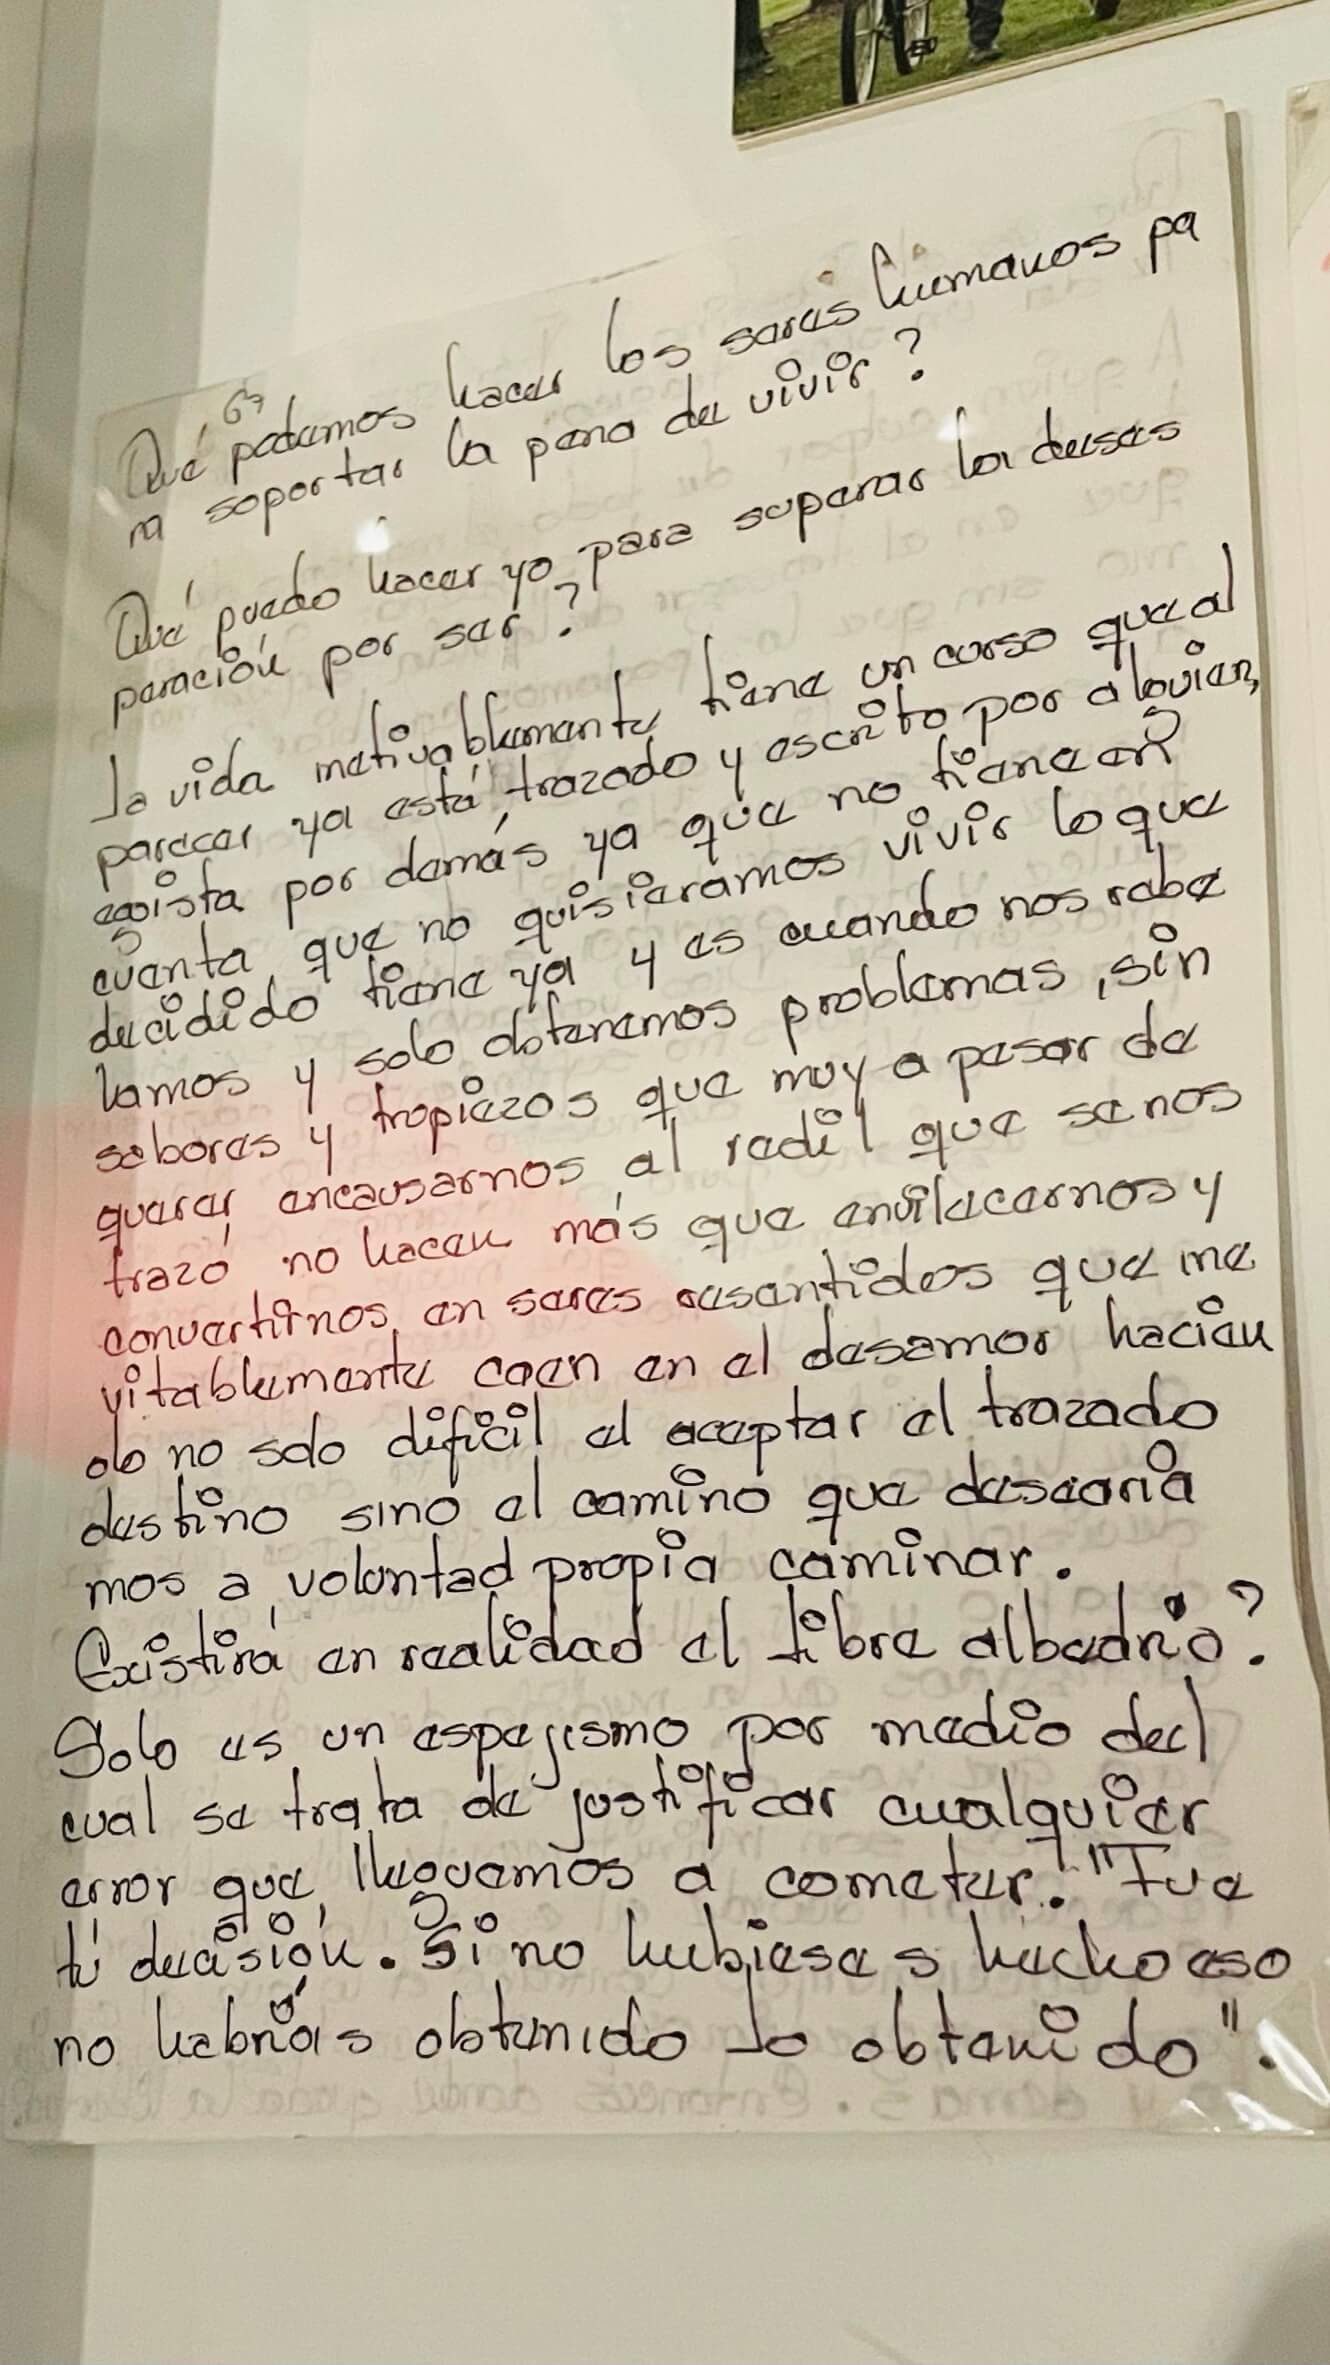 Qué podemos hacer los seres humanos pa
ra soportar la pena de vivir?
Qué puedo hacer yo para superar la deses
peración por ser?
La vida inevitablemente tiene un curso que al
parecer ya está trazado y escrito por alguien,
egoista por demás ya que no tiene en
cuenta que no quisieramos vivir lo que
decidido tiene ya y es cuando nos rebe
lamos y solo obtenemos problemas, sin
sabores y tropiezos que muy a pesar de
querer encausarnos al redil que se nos
trazó no hacen más que envilecernos y
convertirnos en seres resentidos que ine
vitablemente caen en el desamor hacien
do no solo dificil el aceptar el trazado
destino sino el camino que desearia
mos a voluntad propia caminar.
Existirá en realidad el libre albedrío?
Solo es un espejismo por medio del
cual se trata de justificar cualquier
error que lleguemos a cometer. "Fue
tú decisión. Si no hubieses hecho eso
no habrías obtenido lo obtenido".